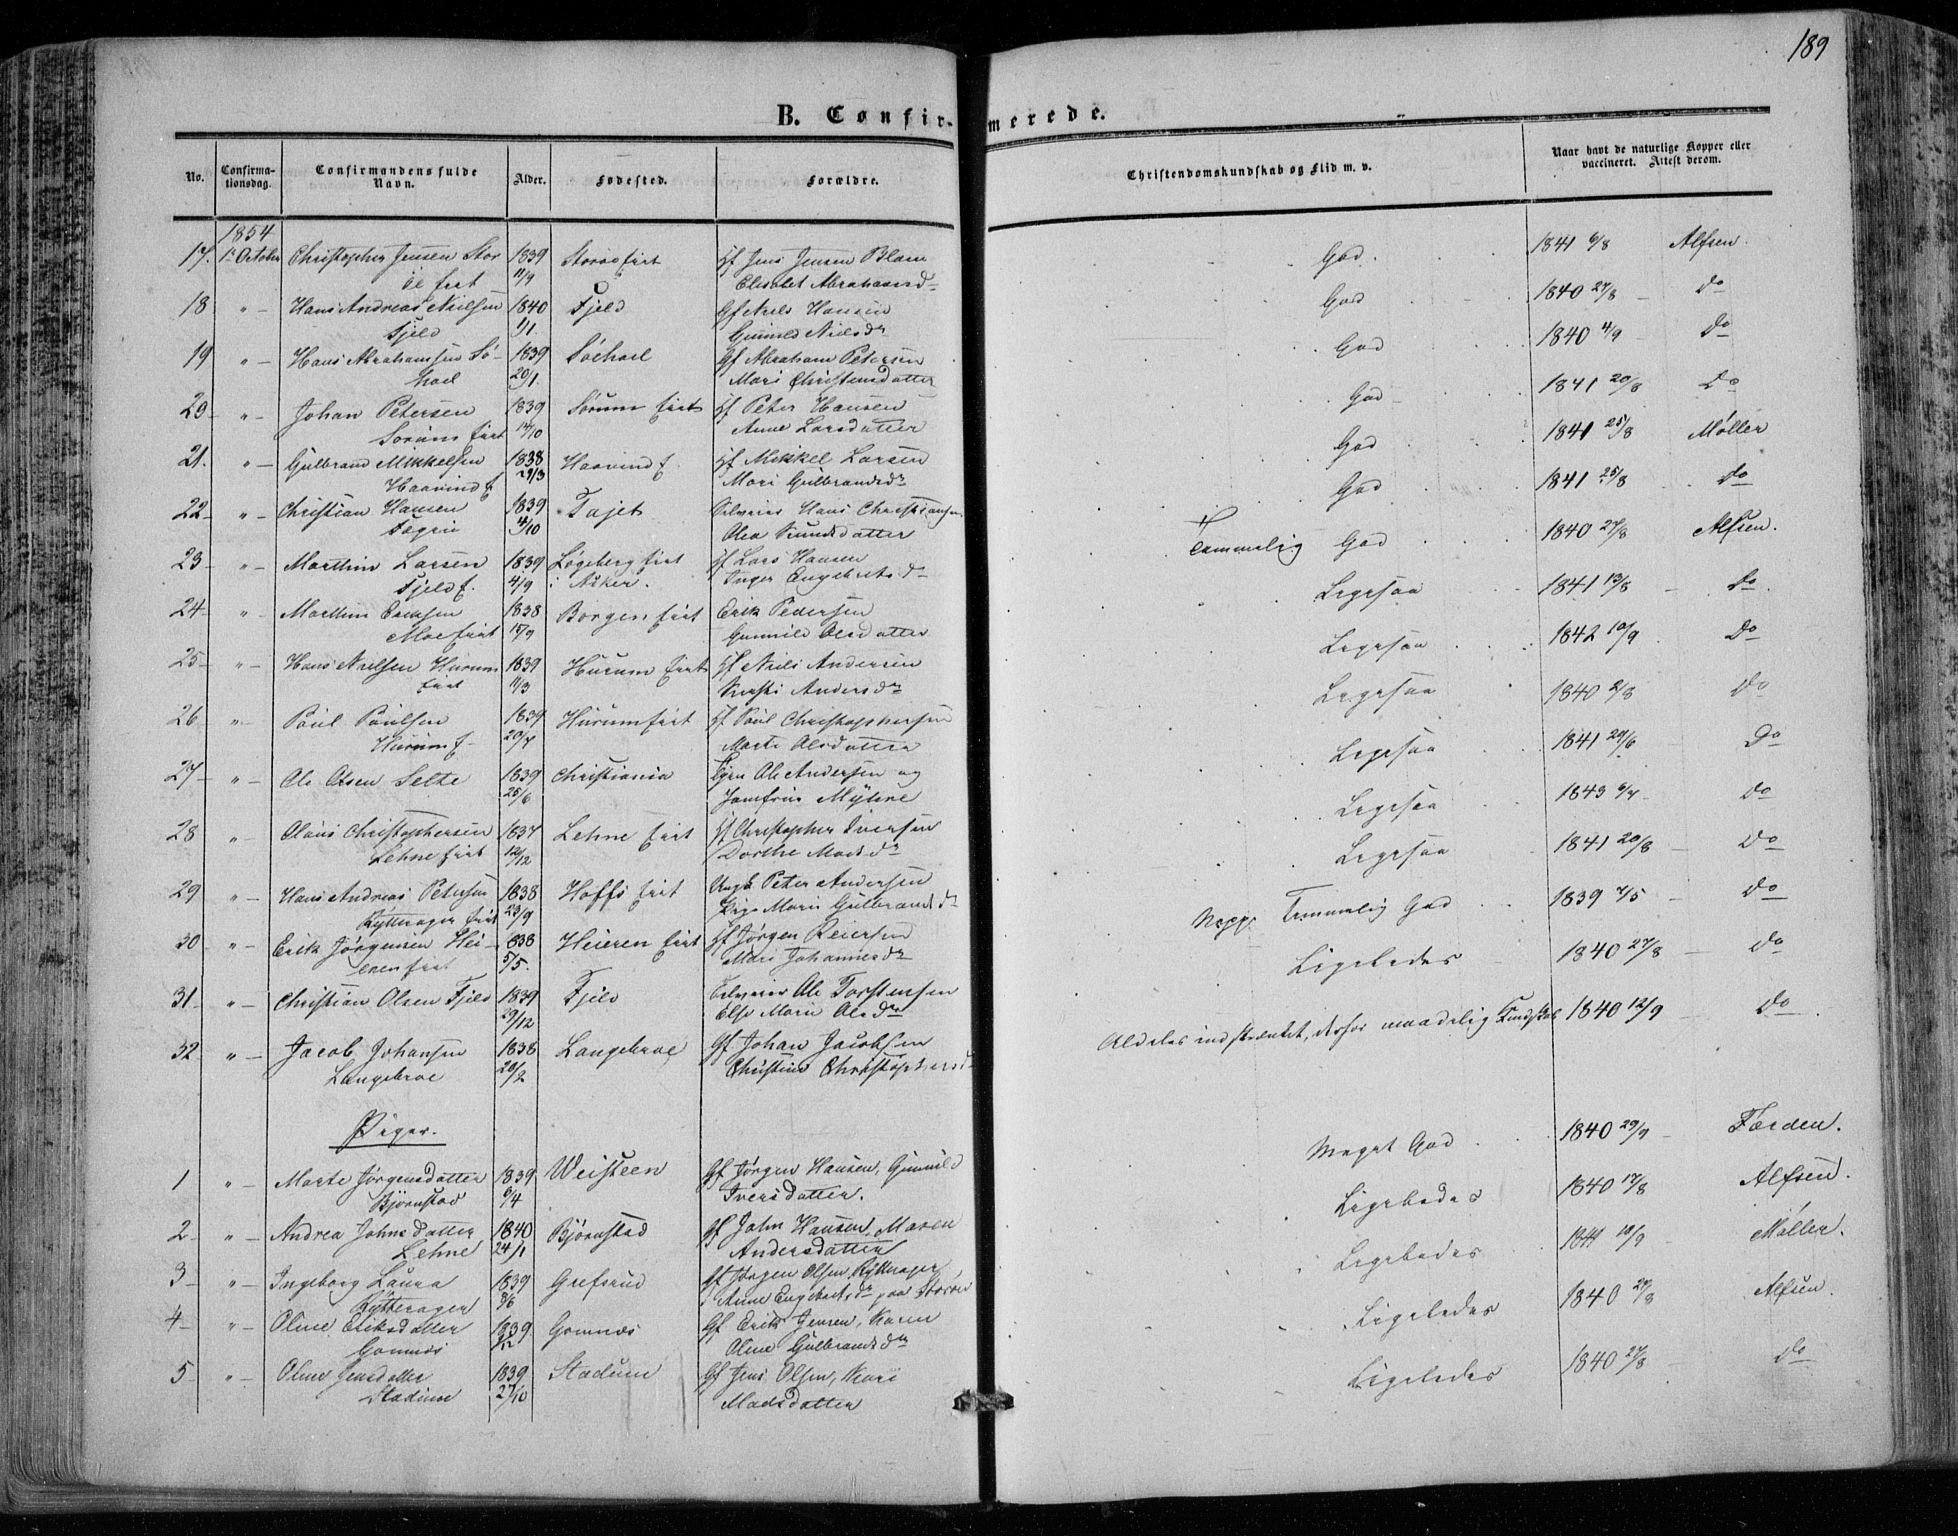 189
B. Confirmerede.
No. Confirmationsdag. Confirmandens fulde Navn. Alder. Fødested. Forældre. Christendomskundskab og Flid m. v. Naar havt de naturlige Kopper eller vaccineret. Attest derom.
1854
17. 1ste October Christopher Jensen Stor 1839 Storøe Eiet Gf Jens Jensen Blom God. 1841 6/8 Alfsen.
øe Eiet 11/9 Elisabet Abrahamsdr
18 " Hans Andreas Nielsen 1840 Fjeld Gf Niels Hansen God 1840 27/8 Do
Fjeld 1/1 Gunild Nielsdr
19 " Hans Abrahamsen Sø- 1839 Søehoel Gf Abraham Petersen God 1840 4/9 Do
hoel 20/1 Mari Christensdatter
20 " Johan Petersen 1839 Sørum Eiet Gf Peter Hansen God 1841 20/8 Do
Sørum Eiet 14/10 Anne Larsdatter
21. " Gulbrand Mikkelsen 1838 Haavind E. Gf Mikkel Larsen God 1841 25/8 Møller
Haavind E 29/3 Mari Gulbrandsdr
22 " Christian Hansen 1839 Tajet Hans Christiansen God 1841 25/8 Do
4/10 datter
23 " Marthin Larsen 1839 Løgeberg Eiet Gf Lars Hansen Temmelig God 1840 27/8 Alfsen.
Fjeld E. 4/9 i Asker. Inger Engebretsdr
24 " Marthin Eriksen 1838 Borgen Eiet Erik Pedersen Ligesaa 1841 13/8 Do
Moe Eiet 15/9 Gunnild Olsdatter
25 " Hans Nielsen Hurum 1839 Hurum Eiet Gf Niels Andersen Ligesaa 1842 10/9 Do
Eiet 11/3 Kirsti Andersdr
26 " Poul Poulsen 1839 Hurum Eiet Gf Poul Christophersen Ligesaa 1840 2/8 Do
Hurum E 20/7 Marte Olsdatter
27 " Ole Olsen Selte 1839 Christiania Ole Andersen og Ligesaa 1841 29/6 Do
25/6 Jomfrue Myhre
28 " Olaus Christophersen 1837 Lehne Eiet Gf Christopher Iversen Ligesaa 1843 6/7 Do
Lehne Eiet 12/12 Dorthe Madsdr
29 " Hans Andreas Petersen 1838 Hoffs Eiet Ungk Peter Andersen Ligesaa 1841 20/8 Do
Rytterager Eiet 23/9 Pige Marie Gulbrandsdr
30 " Erik Jørgensen Hei- 1838 Heieren Eiet Gf Jørgen Reiersen Neppe Temmelig God 1839 7/5 Do
eren Eiet 5/5. Mari Johannesdr
31 " Christian Olsen Fjeld 1839 Fjeld Ole Torstensen Ligeledes 1840 27/8 Do
29/12 Else Marie Olsdr
32 " Jacob Johansen 1838 Langebroe Gf Johan Jacobsen Aldeles indskrænket, derfor maadelig Kundskab 1840 12/9 Do
Langebroe 20/2 Christine Christophersd
Piger.
1 " Marte Jørgensdatter 1839 Weisteen Gf Jørgen Hansen, Gunnild Meget God 1840 29/9 Færden.
Bjørnstad 6/4 Iversdatter.
2 " Andrea Johnsdatter 1840 Bjørnstad Gf John Hansen, Maren Ligeledes 1840 17/8 Alfsen.
Lehne 24/1 Andersdatter
3 " Ingeborg Laura 1839 Grefsrud Gf Jørgen Olsen Rytterager Ligeledes 1841 10/9 Møller.
Rytterager 3/6 Anne Engebretsdr paa Storøen
4 " Oline Eriksdatter 1839 Gomnæs Gf Erik Jensen, Karen Ligeledes 1840 29/8 Alfsen.
Gomnæs Oline Gulbrandsdr
5 " Oline Jensdatter 1839 Stadum Gf Jens Olsen, Kari Ligeledes 1840 27/8 Do
Stadum 27/10 Madsdatter